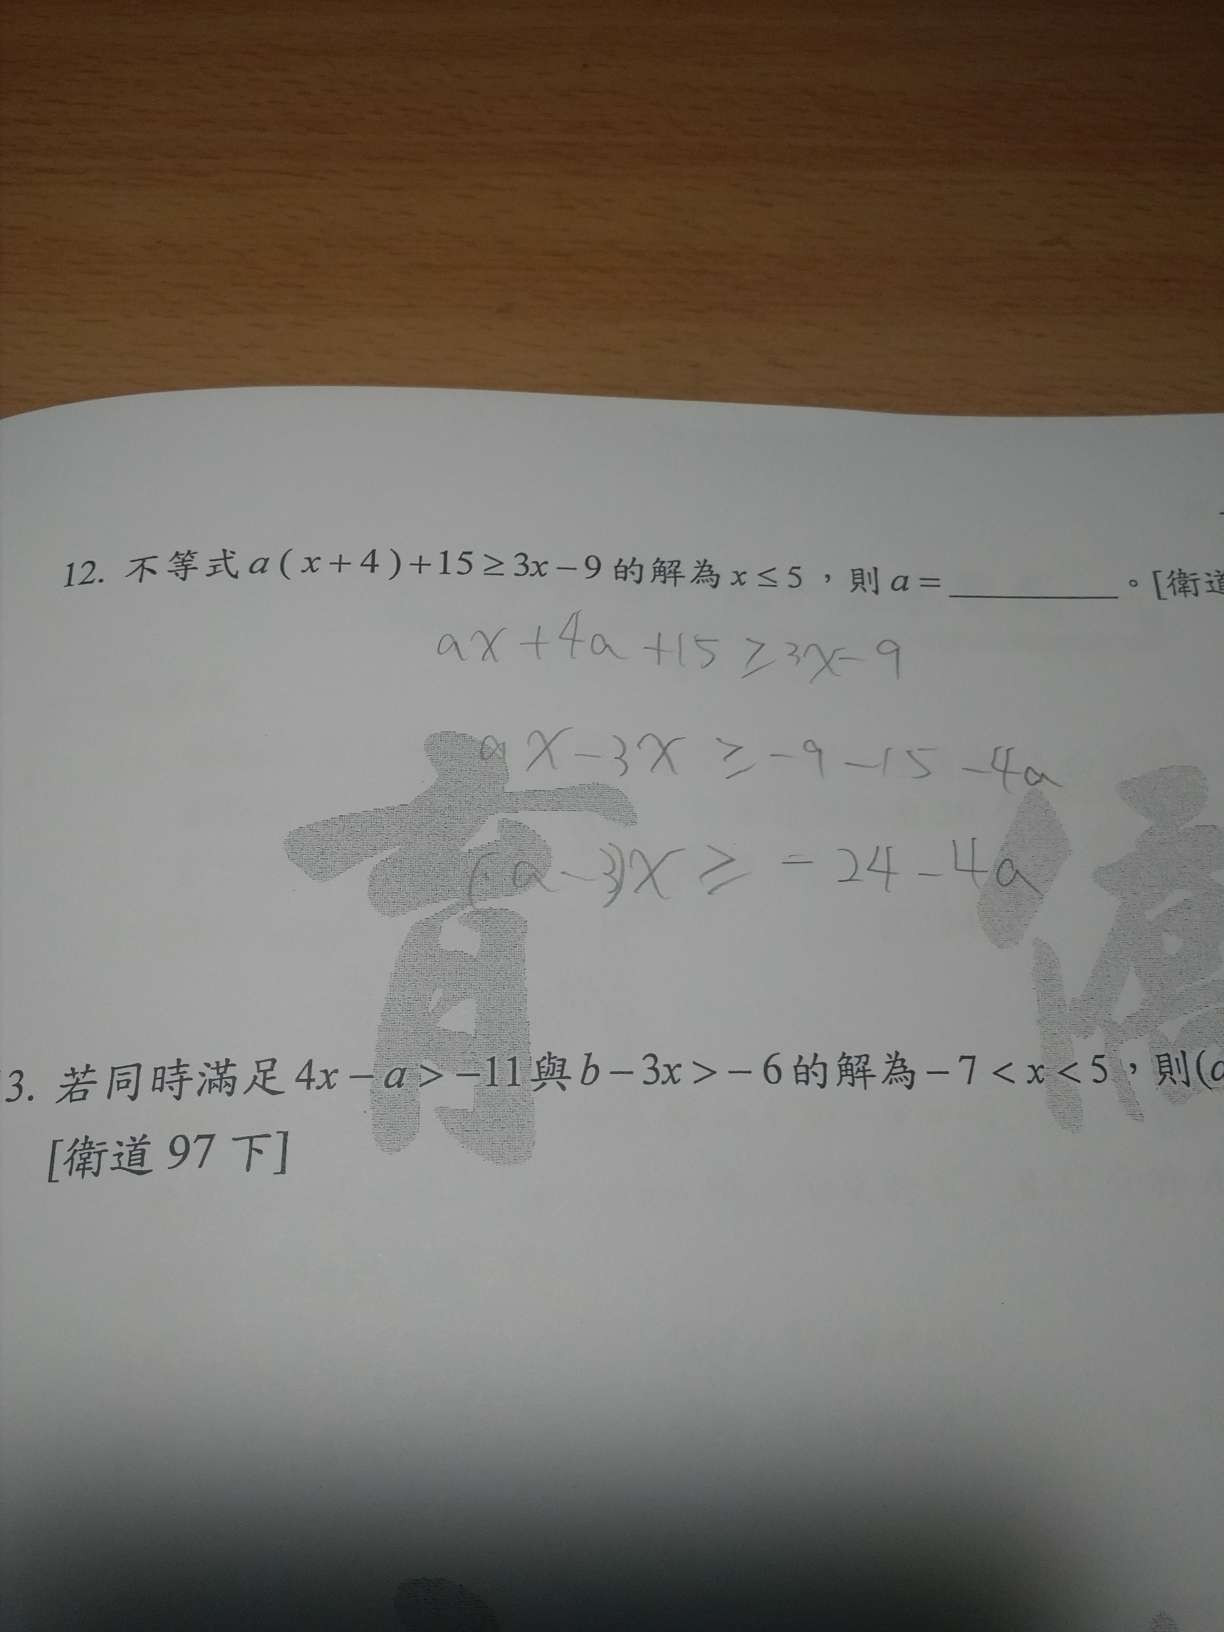 12. 不等式 a(x+4)+15≥3x−9 的解為 x≤5，則 a=________。[衛道
ax+4a+15≥3x−9
ax−3x≥−9−15−4a
(a−3)x≥−24−4a
3. 若同時滿足 4x−a>−11 與 b−3x>−6 的解為 −7<x<5，則(a
[衛道 97 下]
育 億